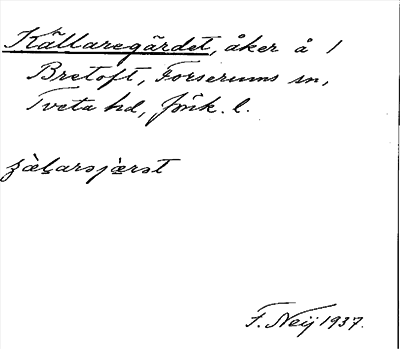 Källaregärdet, åker å 1
Bretoft, Forserums sn,
Tveta hd, Jönk. l.
F. Neij 1937.